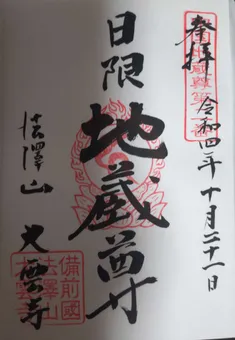 奉拝
令和四年十月二十一日
日限
地蔵尊
法澤山
大雲寺
備前國
法澤山
大雲寺